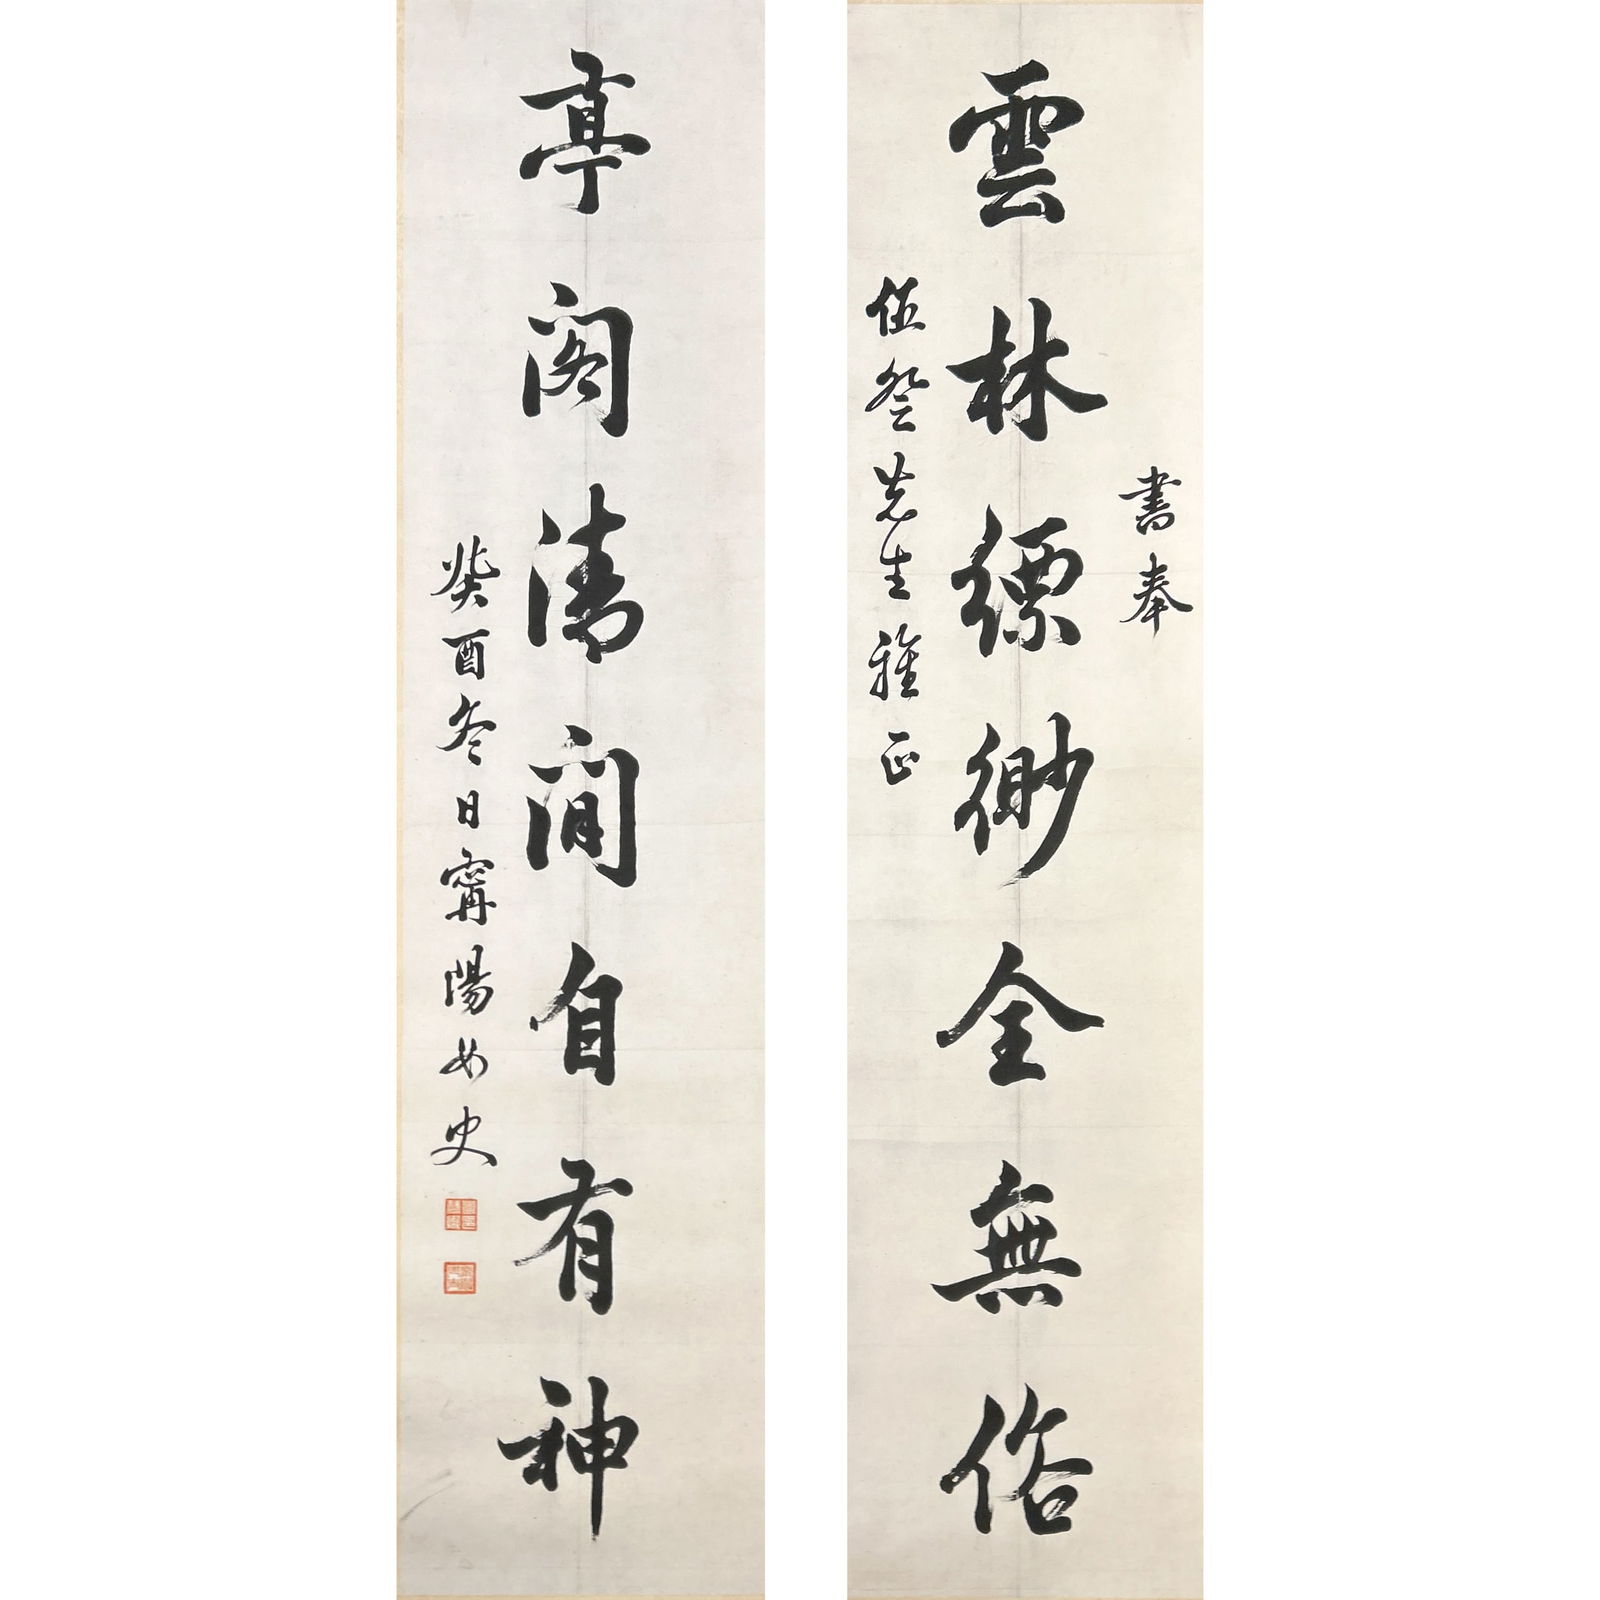 書奉
雲林縹緲全無俗
伍登先生雅正
亭閣清間自有神
癸酉冬日甯陽女史